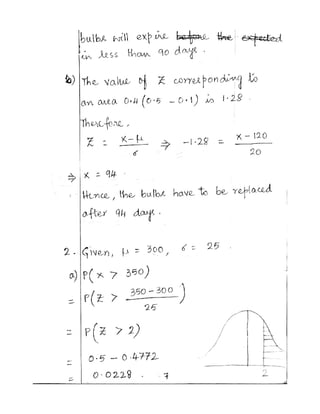 bulbs will expire before the expected
in less than 90 days.
b) The value of Z corresponding to
an area 0.4 (0.5 - 0.1) is 1.28
Therefore,
Z = x-μ / σ ⇒ -1.28 = x - 120 / 20
⇒ x = 94
Hence, the bulbs have to be replaced
after 94 days.
2. Given, μ = 300, σ = 25
a) P(x > 350)
= P(Z > 350 - 300 / 25)
= P(Z > 2)
= 0.5 - 0.4772
= 0.0228.
2